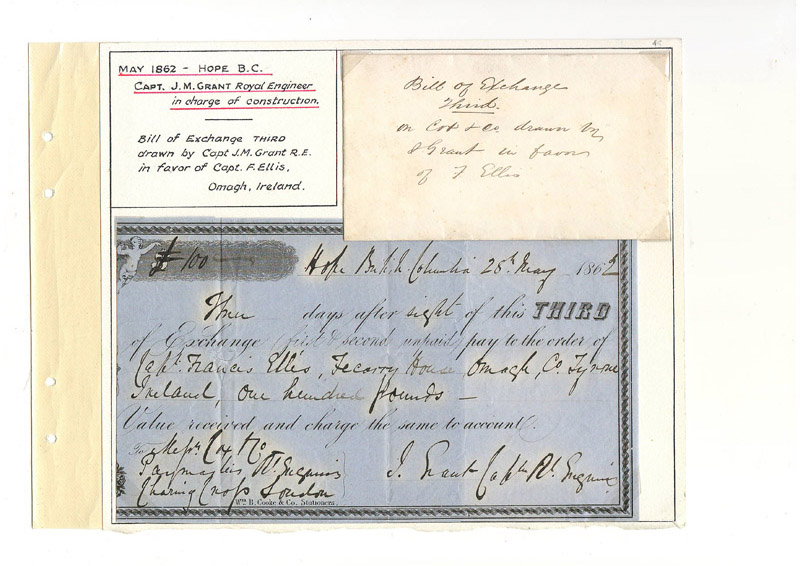 MAY 1862 - HOPE B.C.
CAPT. J.M. GRANT Royal Engineer
in charge of construction.
Bill of Exchange THIRD
drawn by Capt J.M. Grant R.E.
in favor of Capt. F. Ellis,
Omagh, Ireland.
Bill of Exchange
Third.
on Cox & Co. drawn by
J Grant in favor
of F Ellis
£ 100
Hope British Columbia 26th May 1862
Three days after sight of this THIRD
of Exchange (first & second unpaid) pay to the order of
Capt. Francis Ellis, Fecarry House Omagh, Co. Tyrone
Ireland, One hundred pounds —
Value received, and charge the same to account.
To Messrs Cox & Co
Paymasters Rl. Engineers
Charing Cross London
J. Grant Captn Rl. Engineers
Wm. B. Cooke & Co. Stationers.